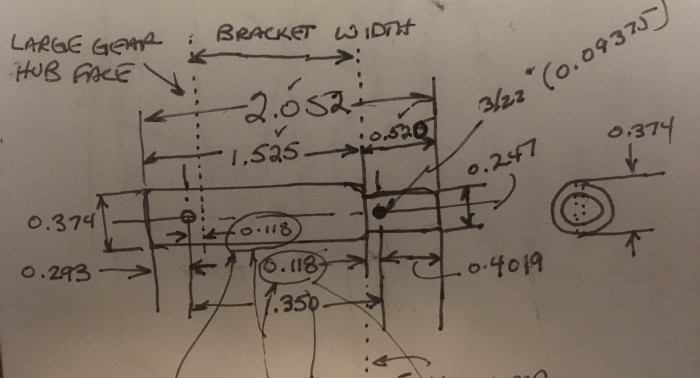 LARGE GEAR
HUB FACE
BRACKET WIDTH
2.052
3/32" (0.09375)
1.525
0.520
0.247
0.374
0.374
0.118
0.293
0.118
0.4019
1.350